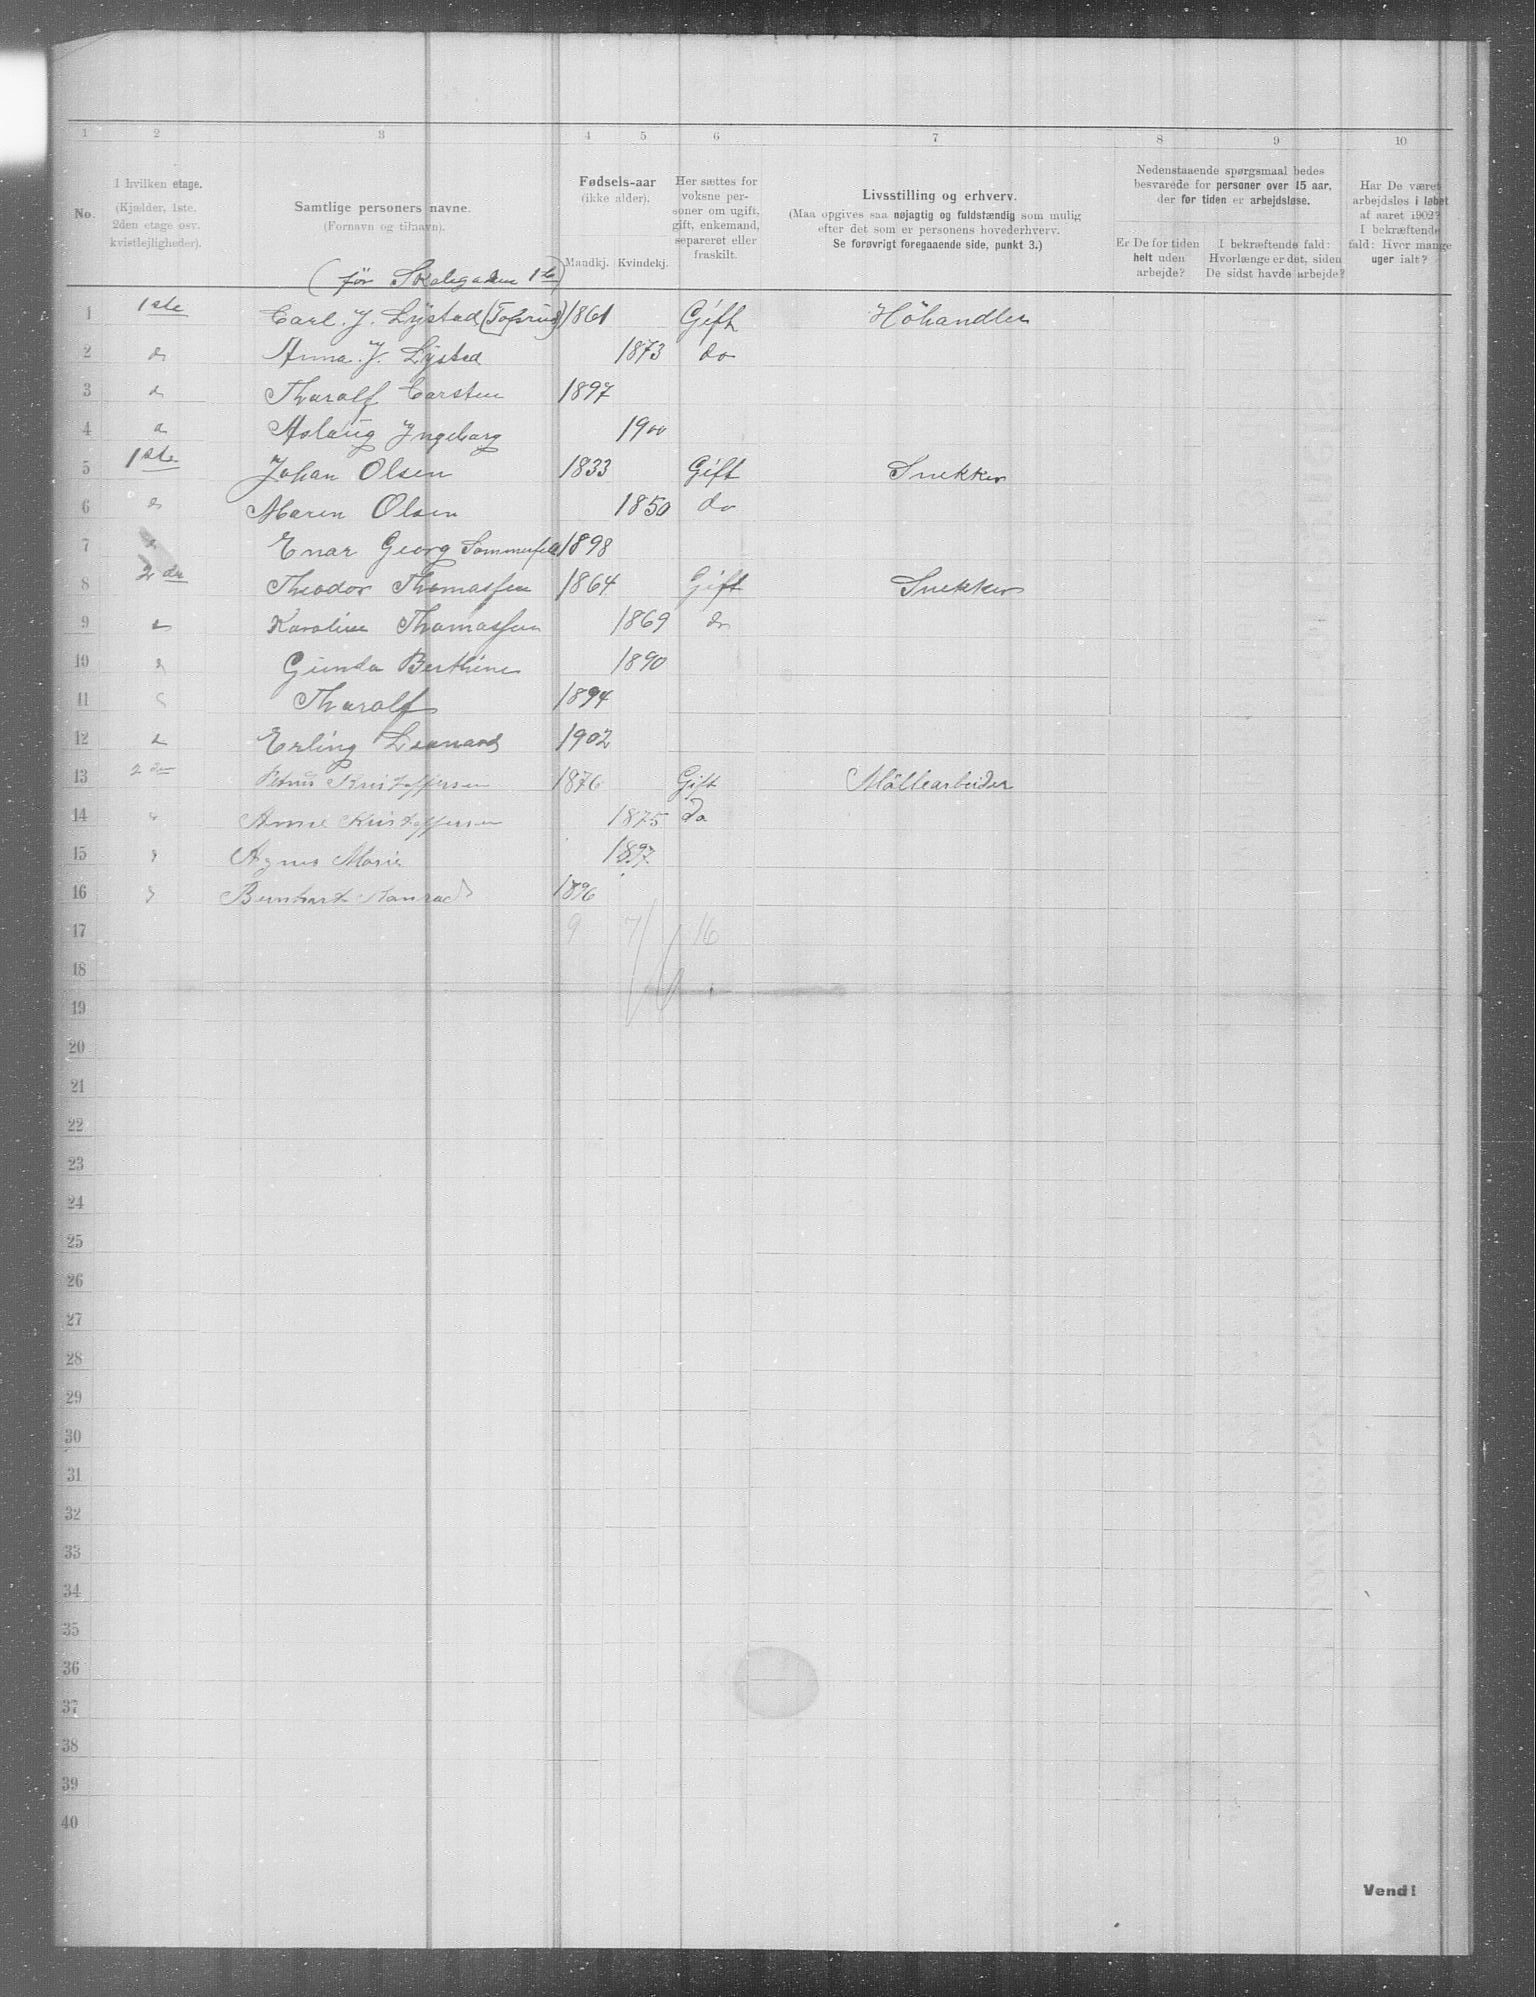 1 2 3 4 5 6 7 8 9 10
No.
I hvilken etage.
(Kjælder, 1ste.
2den etage osv.
kvistlejligheder).
Samtlige personers navne.
(Fornavn og tilnavn).
Fødsels-aar
(ikke alder).
Mandkj. Kvindekj.
Her sættes for
voksne per-
soner om ugift,
gift, enkemand,
separeret eller
fraskilt.
Livsstilling og erhverv.
(Maa opgives saa nøjagtig og fuldstændig som mulig
efter det som er personens hovederhverv.
Se forøvrigt foregaaende side, punkt 3.)
Nedenstaaende spørgsmaal bedes
besvarede for personer over 15 aar,
der for tiden er arbejdsløse.
Er De for tiden
helt uden
arbejde?
I bekræftende fald:
Hvorlænge er det, siden
De sidst havde arbejde?
Har De været
arbejdsløs i løbet
af aaret 1902?
I bekræftende
fald: Hvor mange
uger ialt?
(før
1 1ste Carl. J. Lystad 1861 Gift Höhandler
2 do Anna. J. Lystad 1873 do
3 do Tharalf Carsten 1897
4 do Aslaug Ingeborg 1900
5 1ste Johan Olsen 1833 Gift Snekker
6 do Maren Olsen 1850 do
7 Enar Georg Sommerfelt 1898
8 2den Theodor Thomassen 1864 Gift Snekker
9 do Karoline Thomassen 1869 do
10 do Gunda Berthine 1890
11 Tharalf 1894
12 do Erling Leonard 1902
13 2den Petrus Kristoffersen 1876 Gift Möllearbeider
14 Anne Kristoffersen 1875 Do
15 Agnes Marie 1897
16 Bernhart Konrad 1896
17 9 7 16
18
19
20
21
22
23
24
25
26
27
28
29
30
31
32
33
34
35
36
37
38
39
40
Vend!